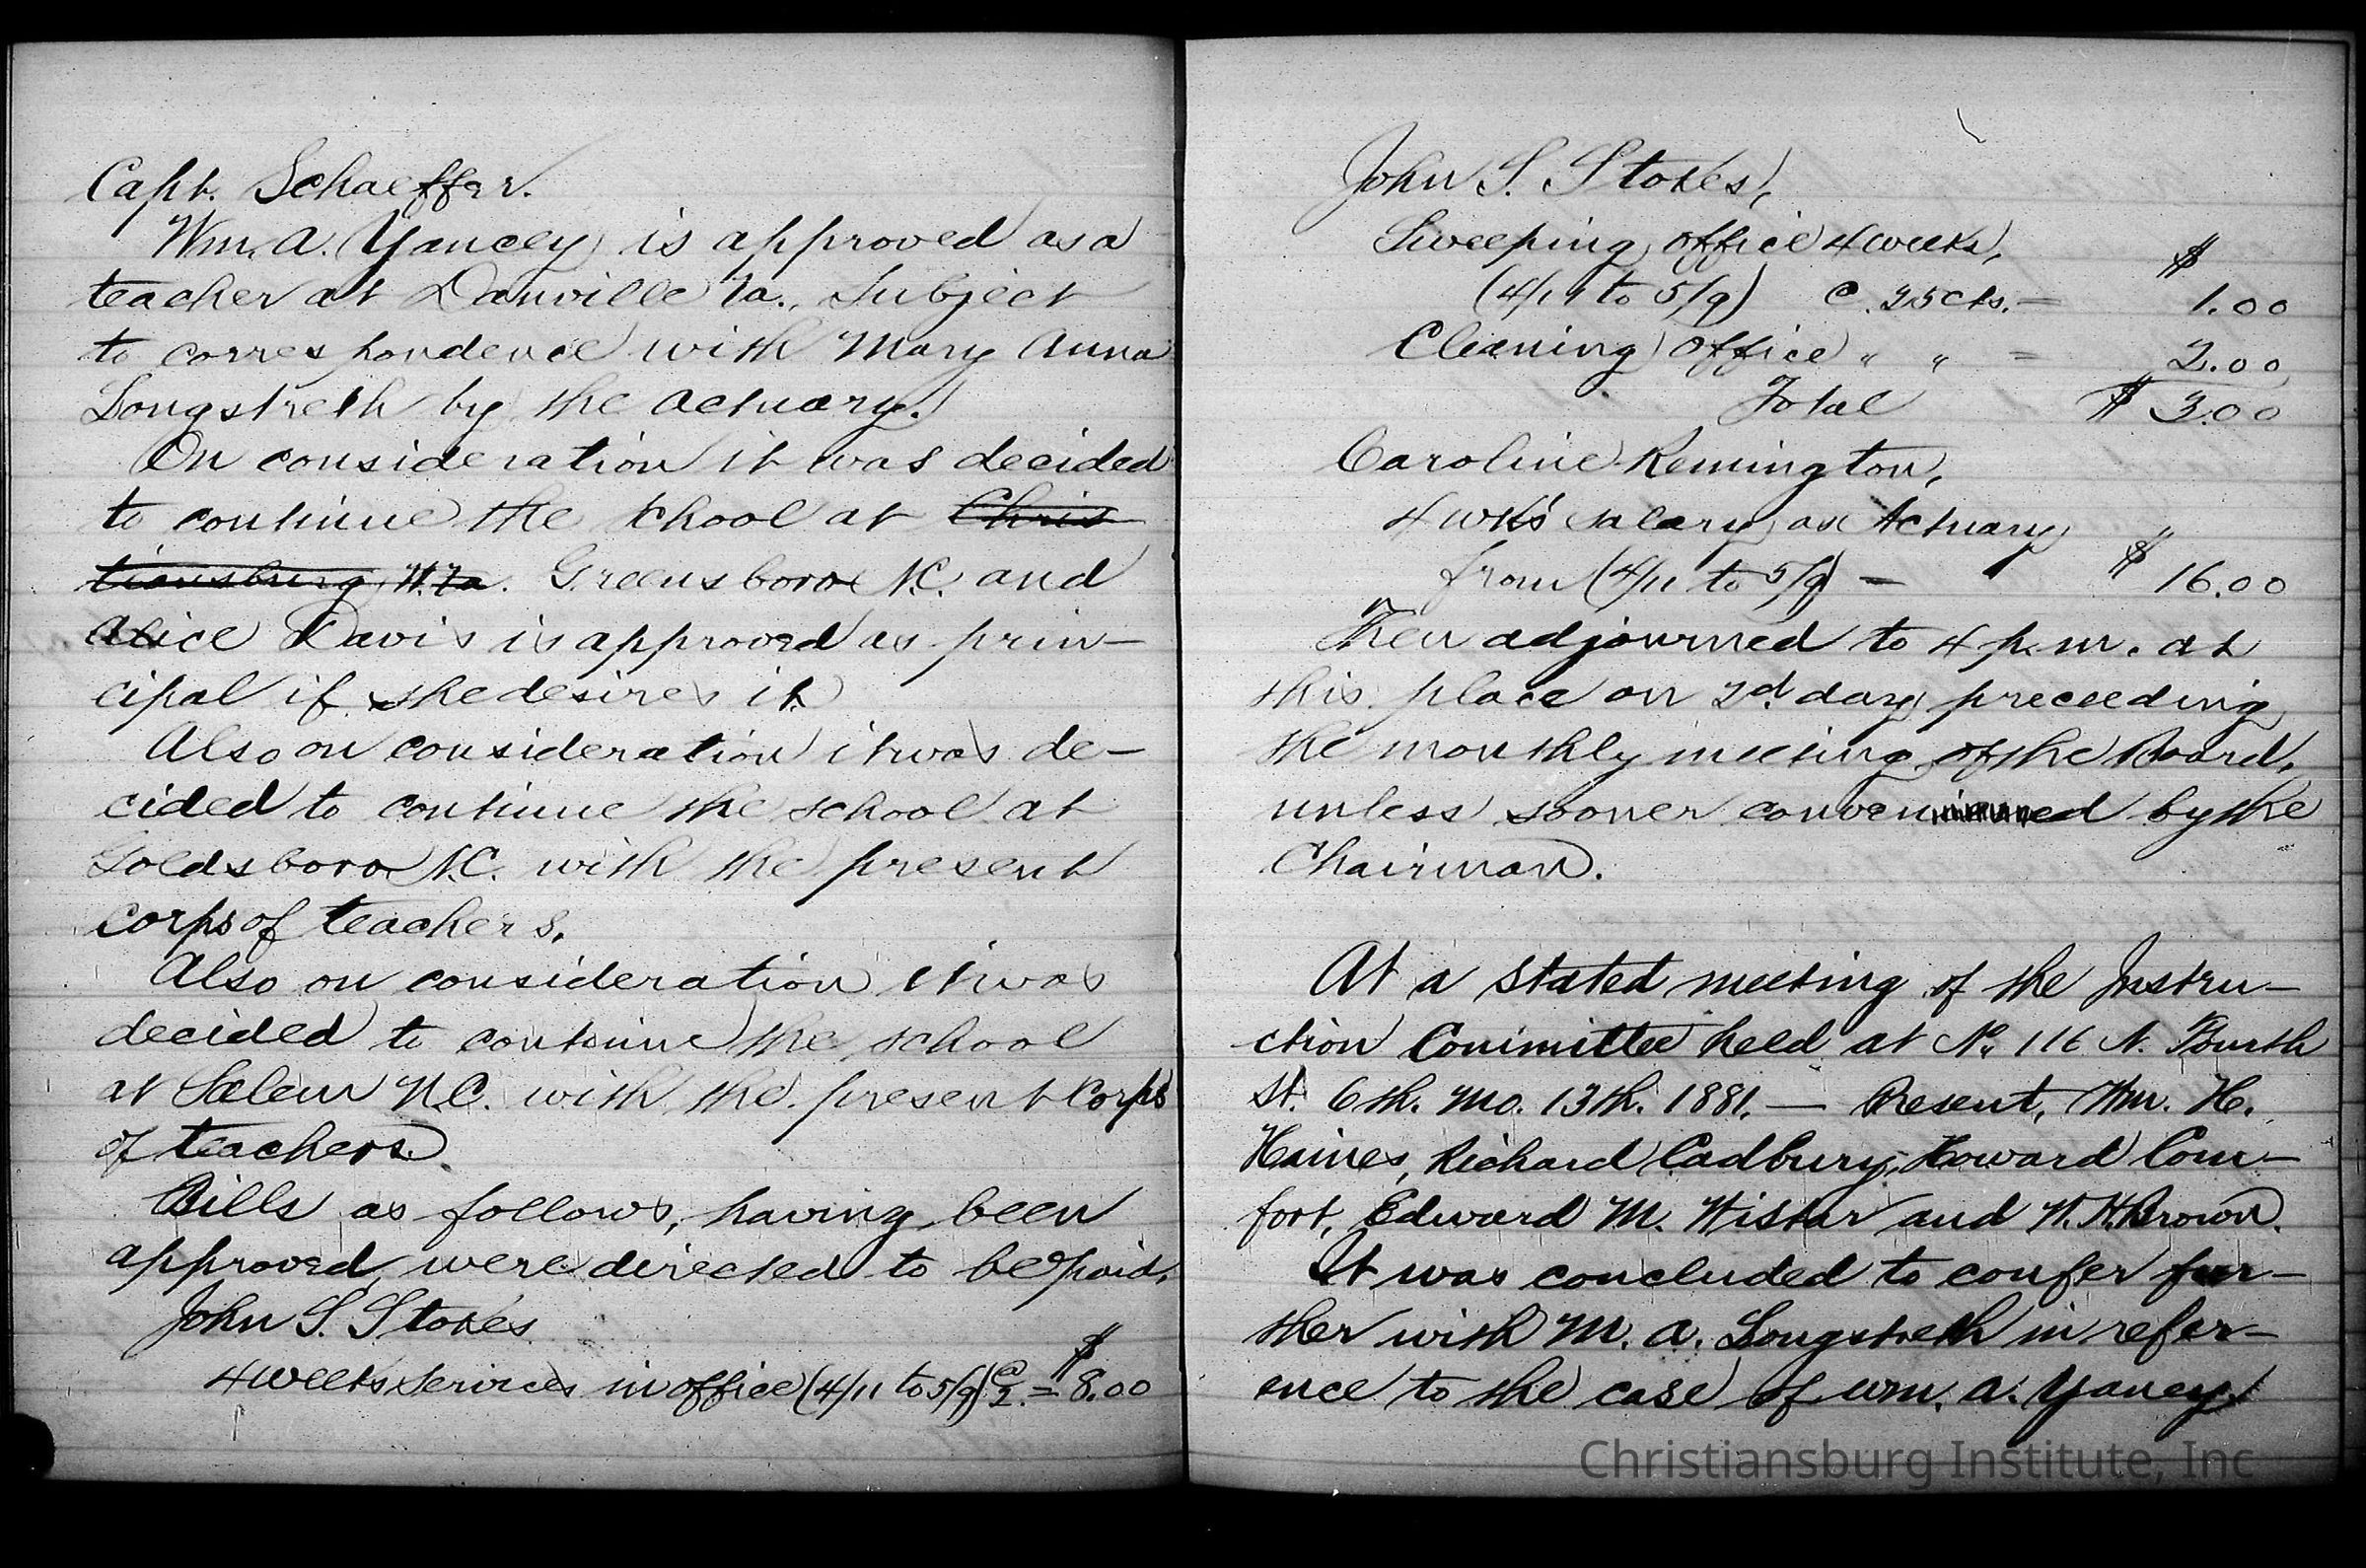 Capt. Schaeffer.
Wm. A. Yancey is approved as a
teacher at Danville Va., Subject
to correspondence with Mary Anna
Longstreth by the Actuary.
On consideration it was decided
to continue the school at Chris
tiansburg, W. Va. Greensboro N.C. and
Alice Davis is approved as prin-
cipal if she desires it.
Also on consideration it was de-
cided to continue the school at
Goldsboro N.C. with the present
corps of teachers.
Also on consideration it was
decided to continue the school
at Salem N.C. with the present corps
of teachers.
Bills as follows, having been
approved, were directed to be paid.
John S. Stokes
4 weeks services in office (4/11 to 5/9) @ 2. = $8.00
John S. Stokes,
Sweeping office 4 weeks, $
(4/11 to 5/9) @. 25 cts. = 1.00
Cleaning office " " = 2.00
Total $3.00
Caroline Remington,
4 wks' salary as Actuary
from (4/11 to 5/9) — $16.00
Then adjourned to 4 p.m. at
this place on 2d. day preceeding
the monthly meeting of the Board,
unless sooner convened by the
Chairman.
At a stated meeting of the Instru-
ction Committee held at No. 116 N. Fourth
St. 6th. Mo. 13th. 1881. — Present, Wm. H.
Haines, Richard Cadbury, Howard Com-
fort, Edward M. Wistar and W. H. Brown.
It was concluded to confer fur-
ther with M. A. Longstreth in refer-
ence to the case of Wm. A. Yancey.
Christiansburg Institute, Inc